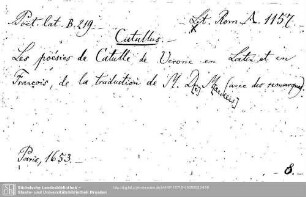 Poët. lat. B. 219. Lit. Rom. A. 1157.
Catullus.
Les poésies de Catulle de Verone en Latin et en
François, de la traduction de M. D[e] M[arolles] (avec des remarques).
Paris, 1653. 8.
Sächsische Landesbibliothek -
Staats- und Universitätsbibliothek Dresden